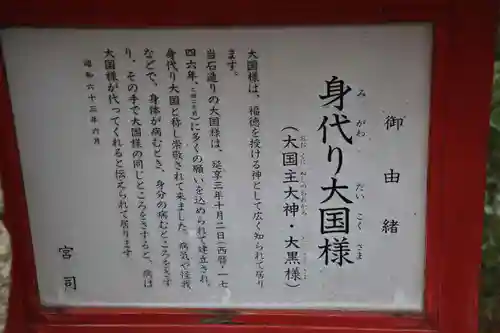 御由緒
身代り大国様
みがわ だいこくさま
（大国主大神・大黒様）
おおくにぬしのおおかみ
大国様は、福徳を授ける神として広く知られて居り
ます。
当石造りの大国様は、延享三年十月二日（西暦一七
四六年、
）に多くの願いを込められて建立され、
身代り大国と称し崇敬されて来ました。病気や怪我
などで、身体が病むとき、身分の病むところをさす
り、その手で大国様の同じところをさすると、病は
大国様が代ってくれると伝えられて居ります
昭和六十三年六月
宮司